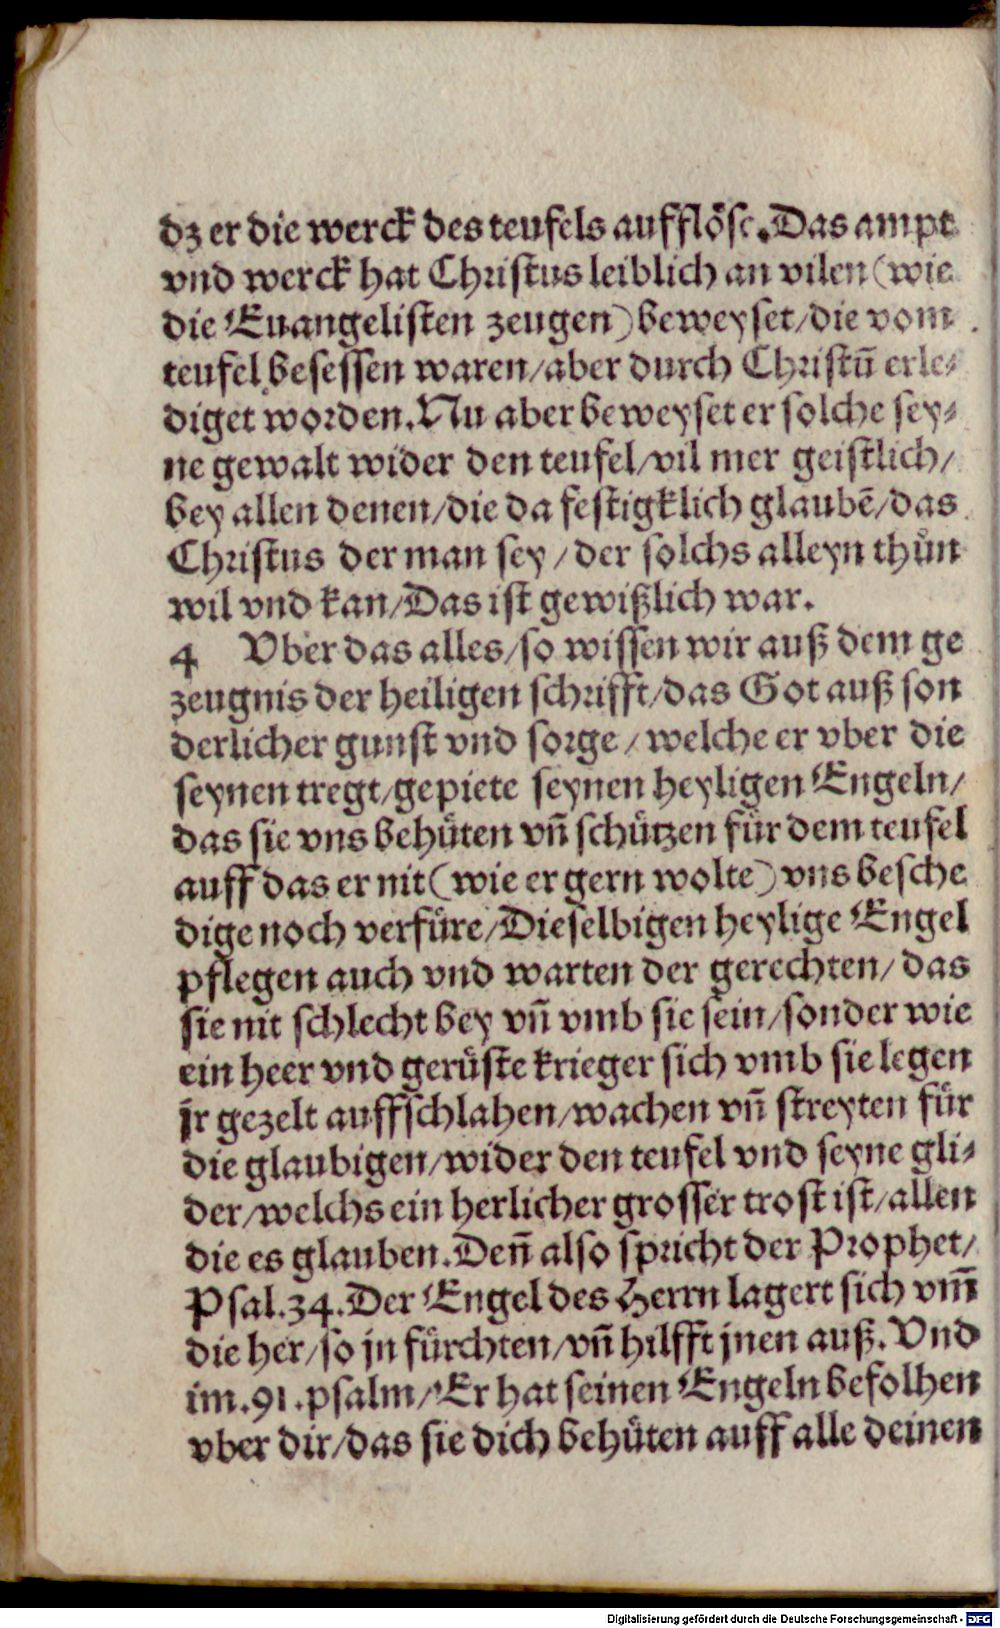 dz er die werck des teufels aufflöse. Das ampt
vnd werck hat Christus leiblich an vilen (wie
die Euangelisten zeugen) beweyset/die vom
teufel besessen waren/aber durch Christū erle⸗
diget worden. Nu aber beweyset er solche sey⸗
ne gewalt wider den teufel/vil mer geistlich/
bey allen denen/die da festigklich glaubē/das
Christus der man sey/der solchs alleyn thůn
wil vnd kan/Das ist gewißlich war.
4 Vber das alles/so wissen wir auß dem ge
zeugnis der heiligen schrifft/das Got auß son
derlicher gunst vnd sorge/welche er vber die
seynen tregt/gepiete seynen heyligen Engeln/
das sie vns behüten vn̄ schützen für dem teufel
auff das er nit (wie er gern wolte) vns besche
dige noch verfüre/Dieselbigen heylige Engel
pflegen auch vnd warten der gerechten/das
sie nit schlecht bey vn̄ vmb sie sein/sonder wie
ein heer vnd gerüste krieger sich vmb sie legen
jr gezelt auffschlahen/wachen vn̄ streyten für
die glaubigen/wider den teufel vnd seyne gli⸗
der/welchs ein herlicher grosser trost ist/allen
die es glauben. Den̄ also spricht der Prophet/
Psal.34. Der Engel des Herrn lagert sich vm̄
die her/so jn fürchten/vn̄ hilfft jnen auß. Vnd
im.91.psalm/Er hat seinen Engeln befolhen
vber dir/das sie dich behüten auff alle deinen
Digitalisierung gefördert durch die Deutsche Forschungsgemeinschaft - DFG